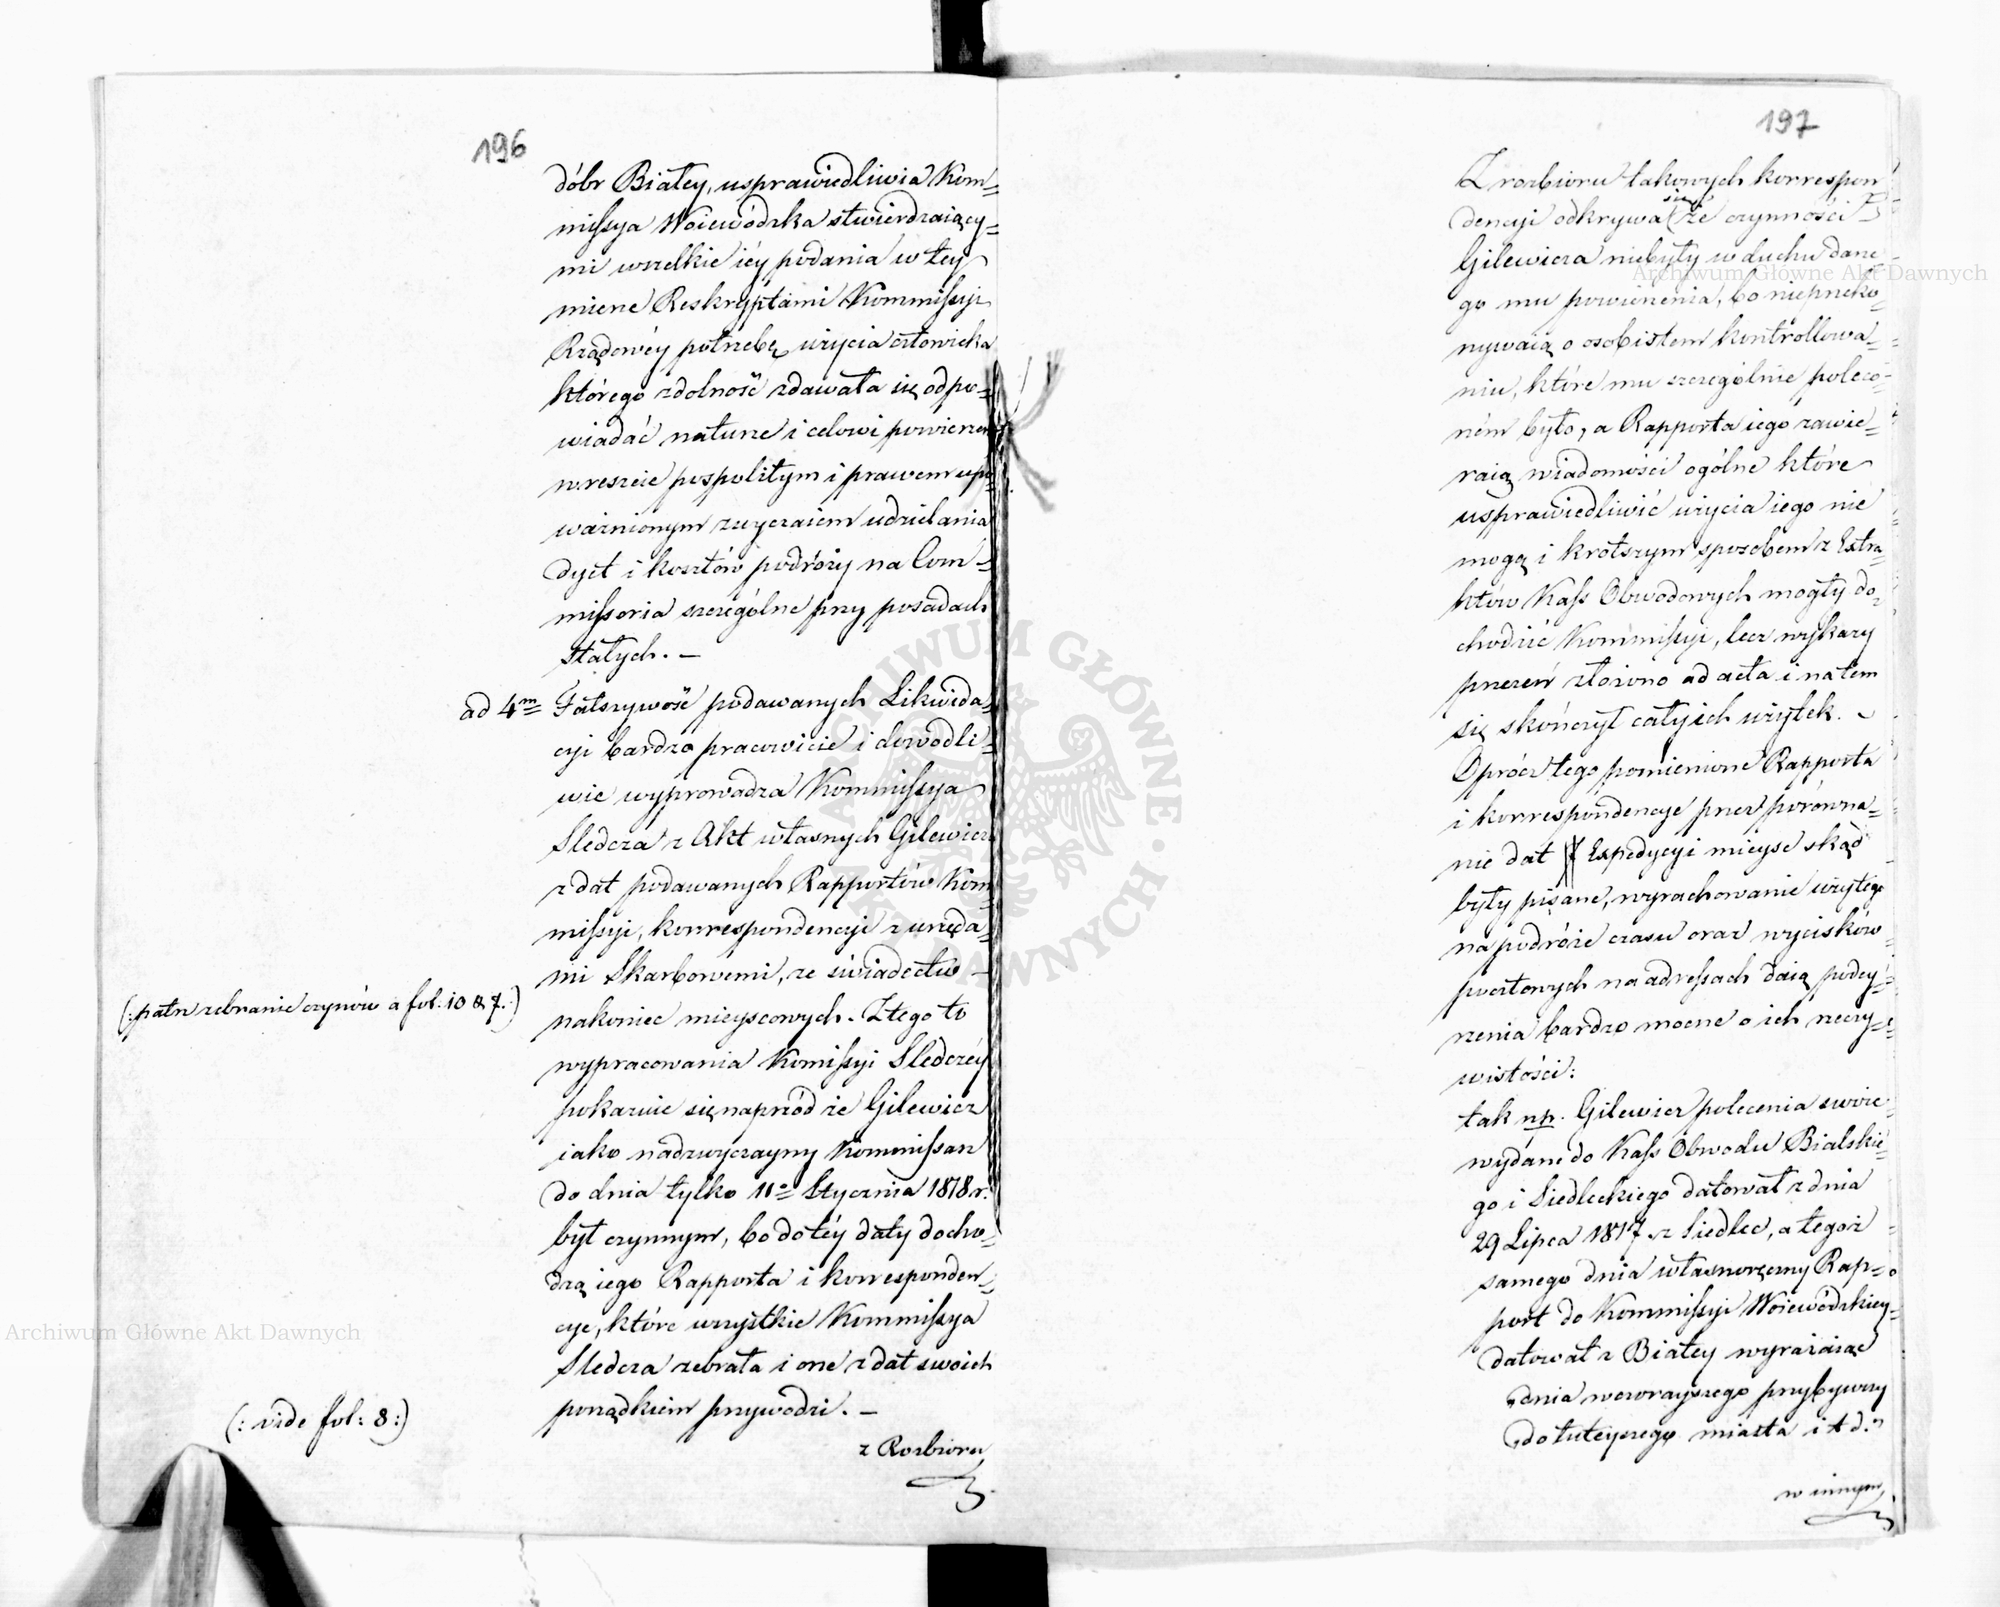 196
dóbr Białey, usprawiedliwia Kom=
missya Woiewódzka stwierdzaiący=
mi wszelkie iéy podania w tey
mierze Reskryptami Kommissyi
Rządowéy potrzebę użycia człowieka
którego zdolność zdawała się odpo=
wiadać naturze i celowi powierzeń
wreszcie pospolitym i prawem upo=
ważnionym zwyczaiem udzielania
dyet i kosztów podróży na Com=
missoria szczególne przy posadach
stałych. —
ad 4m Fałszywość podawanych Likwida=
cyi bardzo pracowicie i dowodli=
wie wyprowadza Kommissya
Sledcza z Akt własnych Gilewicza
z dat podawanych Rapportów Kom=
missyi, korrespondencyi z urzęda=
mi Skarbowemi, ze świadectw
(:patrz zebranie czynów a fol. 10 & 7.:)
nakoniec mieyscowych. Z tego to
wypracowania Komissyi Sledczéy
pokazuie się naprzód że Gilewicz
iako nadzwyczayny Kommissarz
do dnia tylko 11o Stycznia 1818 r.
był czynnym, bo do téy daty docho=
dzą iego Rapporta i korresponden=
cye, które wszystkie Kommissya
Sledcza zebrała i one z dat swoich
porządkiem przywodzi. —
(: vide fol: 8 :)
z Rozbioru
197
Z rozbioru takowych korrespon
dencyi odkrywa się że czynności
Gilewicza niebyły w duchu dane=
go mu powierzenia, bo nieprzeko=
nywaią o osobistem kontrollowa=
niu, które mu szczególnie poleco=
ném było, a Rapporta iego zawie=
raią wiadomości ogólne które
usprawiedliwić użycia iego nie
mogą i krótszym sposobem z Extra=
któw Kass Obwodowych mogły do=
chodzić Kommissyi, lecz wykazy
przezeń złożono ad acta i na tem
się skończył cały ich użytek.
Oprócz tego pomienione Rapporta
i korrespondencye przez porówna=
nie dat Expedycyi mieysc skąd
były pisane, wyrachowanie użytego
na podróże czasu oraz wycisków
pocztowych na adressach daią podey=
rzenia bardzo mocne o ich rzeczy=
wistości:
tak np. Gilewicz polecenia swoie
wydane do Kass Obwodu Bialskie=
go i Siedleckiego datował z dnia
29 Lipca 1817 z Siedlec, a tegoż
samego dnia własnoręczny Rap=
port do Kommissyi Woiewódzkiey
datował z Białey wyrażaiąc
„dnia wczorayszego przybywszy
„do tuteyszego miasta i t d."
w innym
Archiwum Główne Akt Dawnych
Archiwum Główne Akt Dawnych
ARCHIWUM GŁÓWNE AKT DAWNYCH